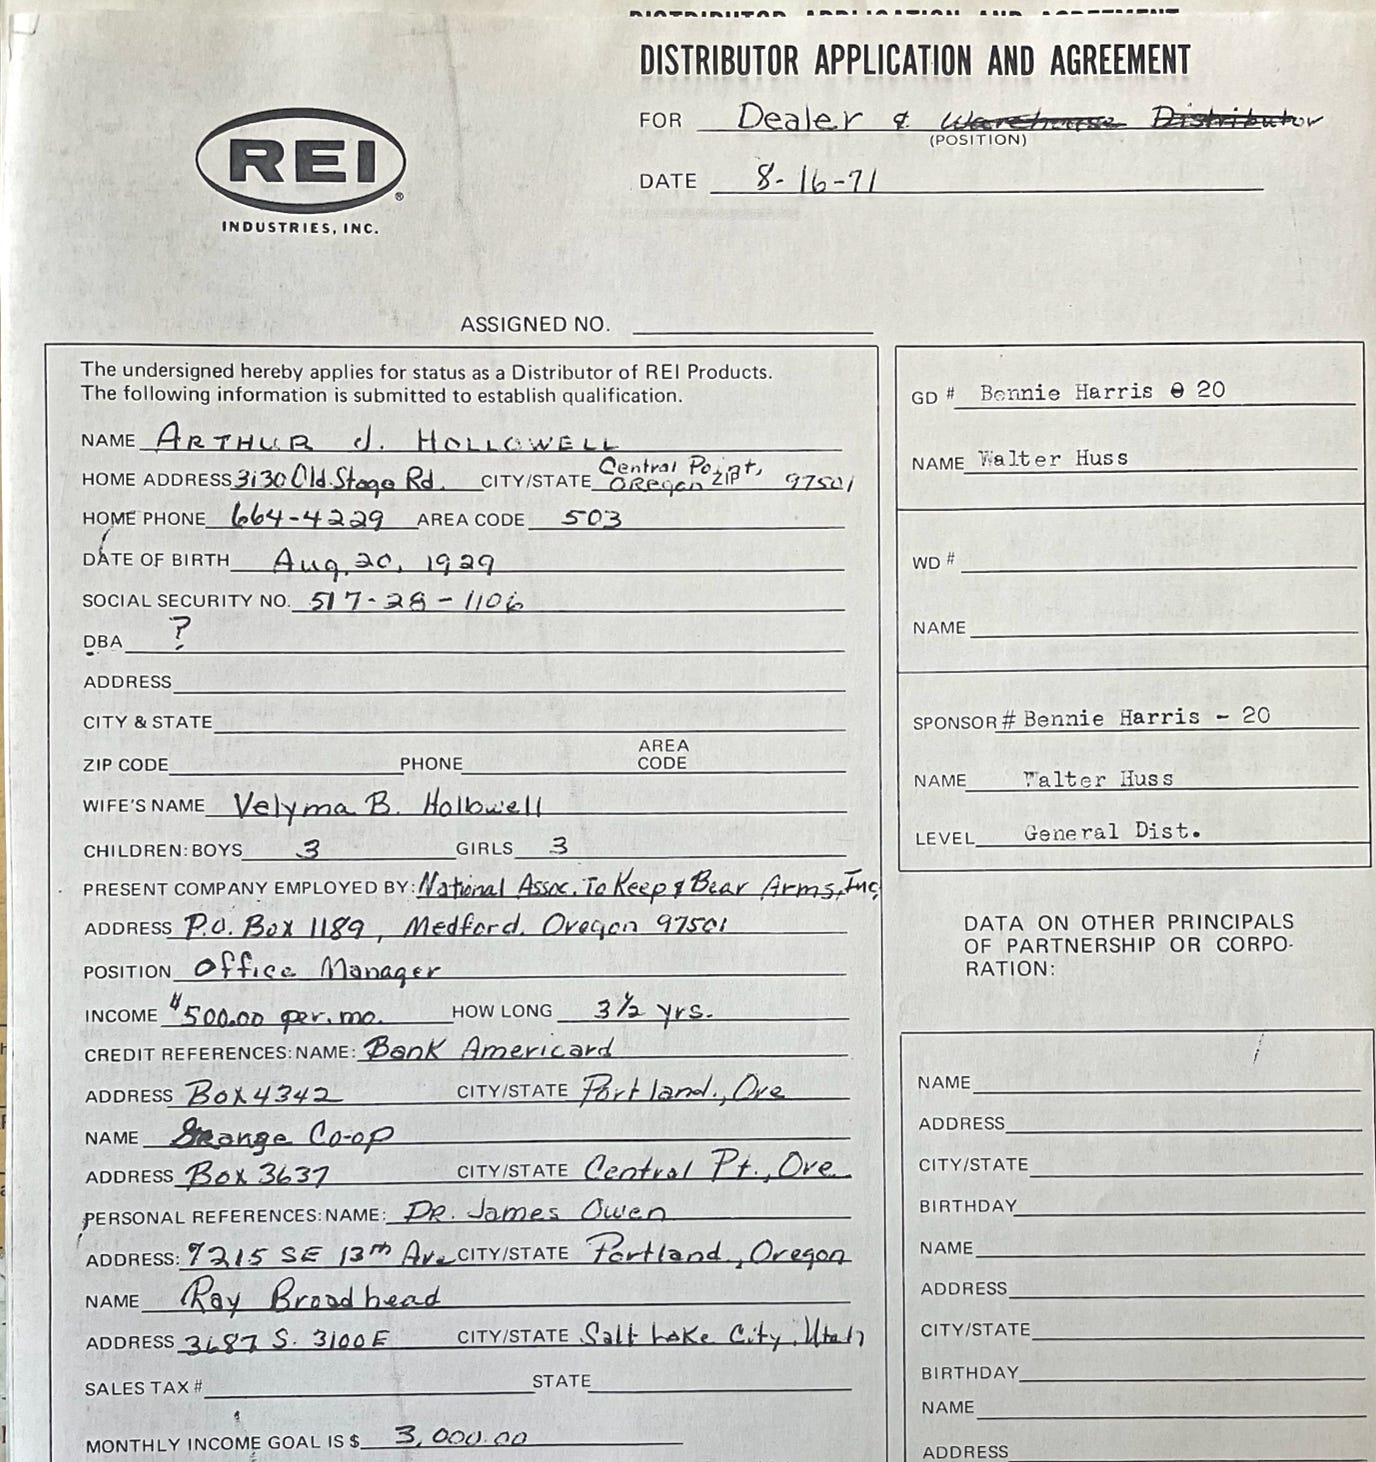 DISTRIBUTOR APPLICATION AND AGREEMENT
DISTRIBUTOR APPLICATION AND AGREEMENT
FOR Dealer & Warehouse Distributor
(POSITION)
DATE 8-16-71
REI ®
INDUSTRIES, INC.
ASSIGNED NO.
The undersigned hereby applies for status as a Distributor of REI Products.
The following information is submitted to establish qualification.
NAME ARTHUR J. HOLLOWELL
HOME ADDRESS 3130 Old Stage Rd. CITY/STATE Central Point, Oregon ZIP 97501
HOME PHONE 664-4229 AREA CODE 503
DATE OF BIRTH Aug. 20, 1929
SOCIAL SECURITY NO. 517-28-1106
DBA ?
ADDRESS
CITY & STATE
ZIP CODE PHONE AREA CODE
WIFE'S NAME Velyma B. Hollowell
CHILDREN: BOYS 3 GIRLS 3
PRESENT COMPANY EMPLOYED BY: National Assoc. To Keep & Bear Arms, Inc
ADDRESS P.O. Box 1189, Medford, Oregon 97501
POSITION Office Manager
INCOME $500.00 per. mo. HOW LONG 3½ yrs.
CREDIT REFERENCES: NAME: Bank Americard
ADDRESS Box 4342 CITY/STATE Portland, Ore
NAME Grange Co-op
ADDRESS Box 3637 CITY/STATE Central Pt., Ore
PERSONAL REFERENCES: NAME: DR. James Owen
ADDRESS: 7215 SE 13th Ave CITY/STATE Portland, Oregon
NAME Ray Broadhead
ADDRESS 3687 S. 3100 E CITY/STATE Salt Lake City, Utah
SALES TAX # STATE
MONTHLY INCOME GOAL IS $ 3,000.00
GD # Bennie Harris 20
NAME Walter Huss
WD #
NAME
SPONSOR # Bennie Harris - 20
NAME Walter Huss
LEVEL General Dist.
DATA ON OTHER PRINCIPALS
OF PARTNERSHIP OR CORPO-
RATION:
NAME
ADDRESS
CITY/STATE
BIRTHDAY
NAME
ADDRESS
CITY/STATE
BIRTHDAY
NAME
ADDRESS